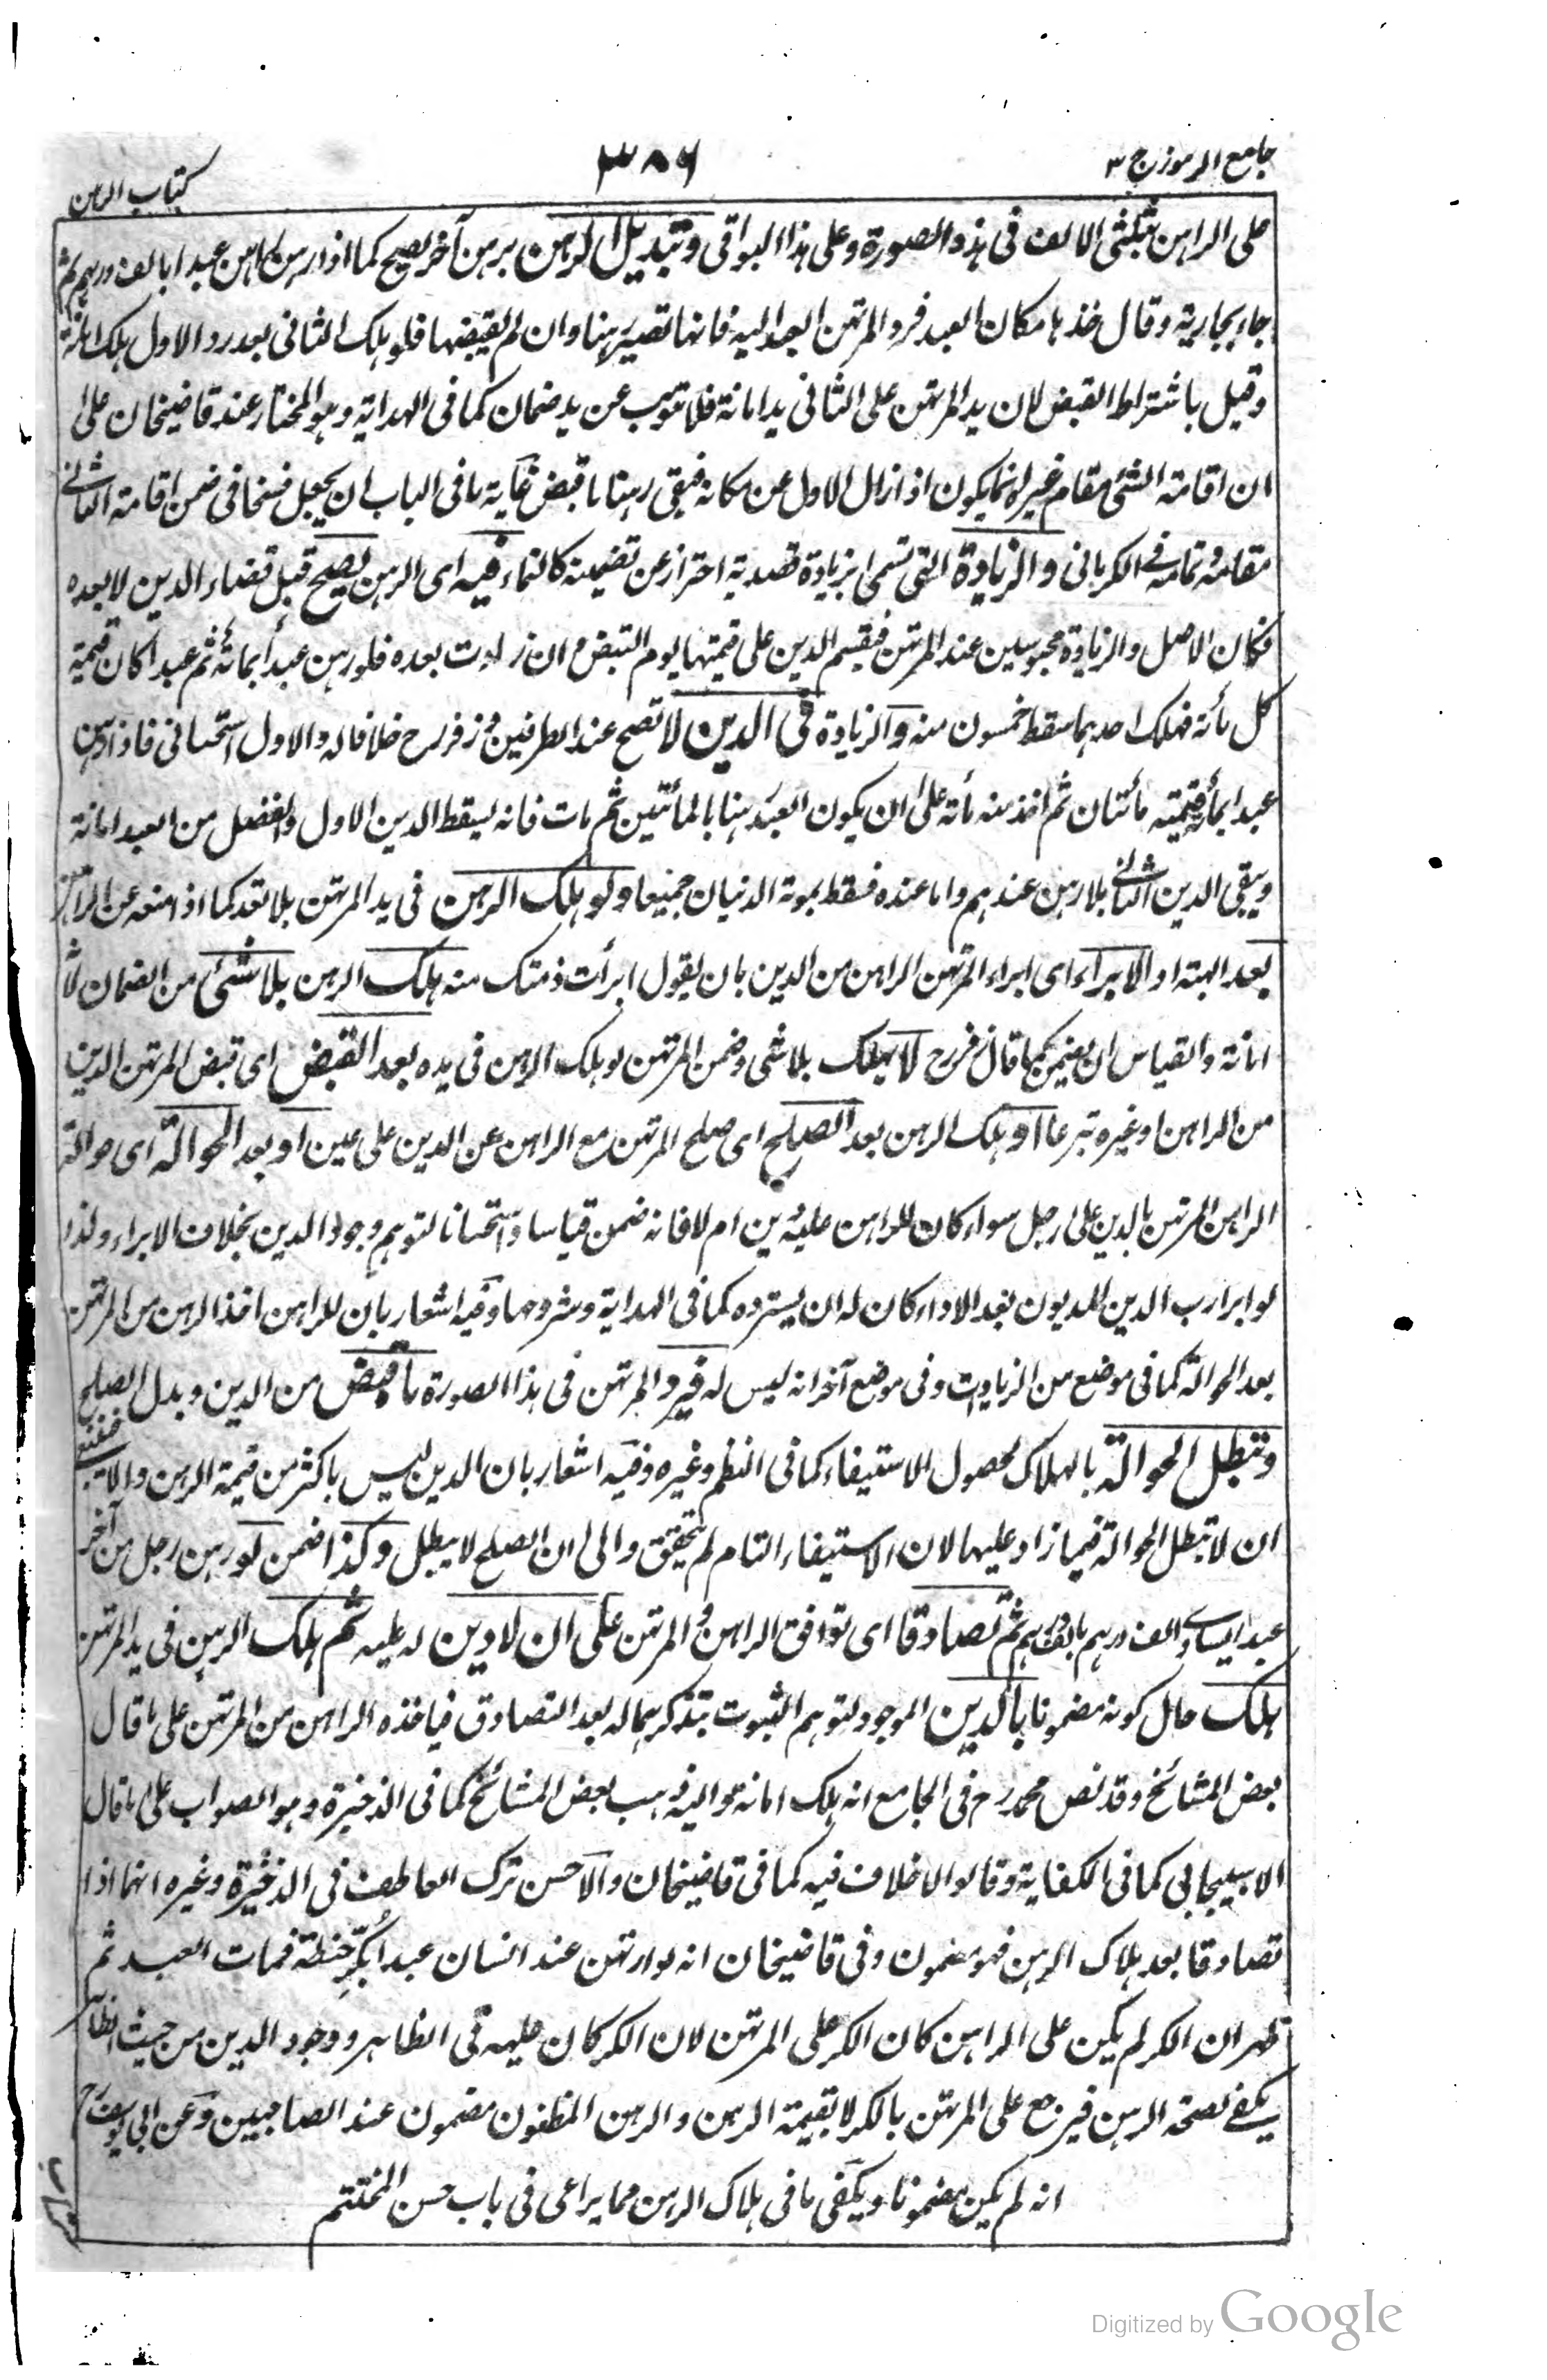 جامع الرموز ج ٣
٣٨٦
كتاب الرهن
على الراهن بثلثى الالف فى هذه الصورة وعلى هذا البواقى وتبديل الرهن برهن آخر يصح كما اذا رهن عبدا بالف درهم ثم
جاء بجارية وقال خذها مكان العبد فرد المرتهن العبد اليه فانها تصير رهنا وان لم يقبضها فلو هلك الثانى بعد رد الاول هلك امانة
وقيل باشتراط القبض لان يد المرتهن على الثانى يد امانة فلا تنوب عن يد ضمان كما فى الهداية وهو المختار عند قاضيخان على
ان اقامة الشئ مقام غيره انما يكون اذا زال الاول عن مكانه فبقى رهنا ما قبض غاية ما فى الباب ان يجعل فسخا فى ضمن اقامة الثانى
مقامه وتمامه فى الكرمانى والزيادة التى تسمى بزيادة قصدية احتراز عن تضمينه كالنماء فيه اى الرهن تصح قبل قضاء الدين لا بعده
فكان الاصل والزيادة محبوسين عند المرتهن فيقسم الدين على قيمتهما يوم القبض وان زادت بعده فلو رهن عبدا بمائة ثم عبدا كان قيمة
كل مائة فهلك احدهما سقط خمسون منه والزيادة فى الدين لا تصح عند الطرفين وزفر رح خلافا له والاول استحسانى فاذا رهن
عبدا بمائة قيمته مائتان ثم اخذ منه مائة على ان يكون العبد رهنا بالمائتين ثم مات فانه يسقط الدين الاول والفضل من العبد امانة
ويبقى الدين الثانى بلا رهن عندهم واما عنده فسقط بموته الدينان جميعا ولو هلك الرهن فى يد المرتهن بلا تعد كما اذا منعه عن الراهن
بعد الهبة او الابراء اى ابراء المرتهن الراهن من الدين بان يقول ابرأت ذمتك منه هلك الرهن بلا شئ من الضمان لانه
امانة والقياس ان يضمن كما قال زفر رح لا يهلك بلا شى وضمن المرتهن لو هلك الرهن فى يده بعد القبض اى قبض المرتهن الدين
من الراهن او غيره تبرعا او هلك الرهن بعد الصلح اى صلح المرتهن مع الراهن عن الدين على عين او بعد الحوالة اى حوالة
الراهن المرتهن بالدين على رجل سواء كان للراهن عليه دين ام لا فانه ضمن قياسا واستحسانا لتوهم وجود الدين بخلاف الابراء ولذا
لو ابرا رب الدين المديون بعد الاداء كان له ان يسترده كما فى الهداية وشروحها وفيه اشعار بان للراهن اخذ الرهن من المرتهن
بعد الحوالة كما فى موضع من الزيادات وفى موضع آخر انه ليس له فيرد المرتهن فى هذا الصورة ما قبض من الدين وبدل الصلح
وتبطل الحوالة بالهلاك لحصول الاستيفاء كما فى النظم وغيره وفيه اشعار بان الدين ليس باكثر من قيمة الرهن والا فينبغى
ان لا تبطل الحوالة فيما زاد عليها لان الاستيفاء التام لم يتحقق والى ان الصلح لا يبطل وكذا ضمن لو رهن رجل من آخر
عبدا يساوى الف درهم بالف درهم ثم تصادقا اى توافق الراهن والمرتهن على ان لا دين له عليه ثم هلك الرهن فى يد المرتهن
هلك حال كونه مضمونا بالدين الموجود لتوهم الثبوت بتذكرهما له بعد التصادق فياخذه الراهن من المرتهن على ما قال
بعض المشائخ وقد نص محمد رح فى الجامع انه هلك امانة واليه ذهب بعض المشائخ كما فى الذخيرة وهو الصواب على ما قال
الاسبيجابى كما فى الكفاية وقالوا لا خلاف فيه كما فى قاضيخان والاحسن ترك العاطف فى الذخيرة وغيره انهما اذا
تصادقا بعد هلاك الرهن فهو مضمون وفى قاضيخان انه لو ارتهن عند انسان عبدا بكر حنطة فمات العبد ثم
ظهر ان الكر لم يكن على الراهن كان الكر على المرتهن لان الكر كان عليه فى الظاهر ووجود الدين من حيث الظاهر
يكفى لصحة الرهن فيرجع على المرتهن بالكر لا بقيمة الرهن والرهن المظنون مضمون عند الصاحبين وعن ابى يوسف رح
انه لم يكن مضمونا ويكفى ما فى هلاك الرهن مما يراعى فى باب حسن المختتم
Digitized by Google